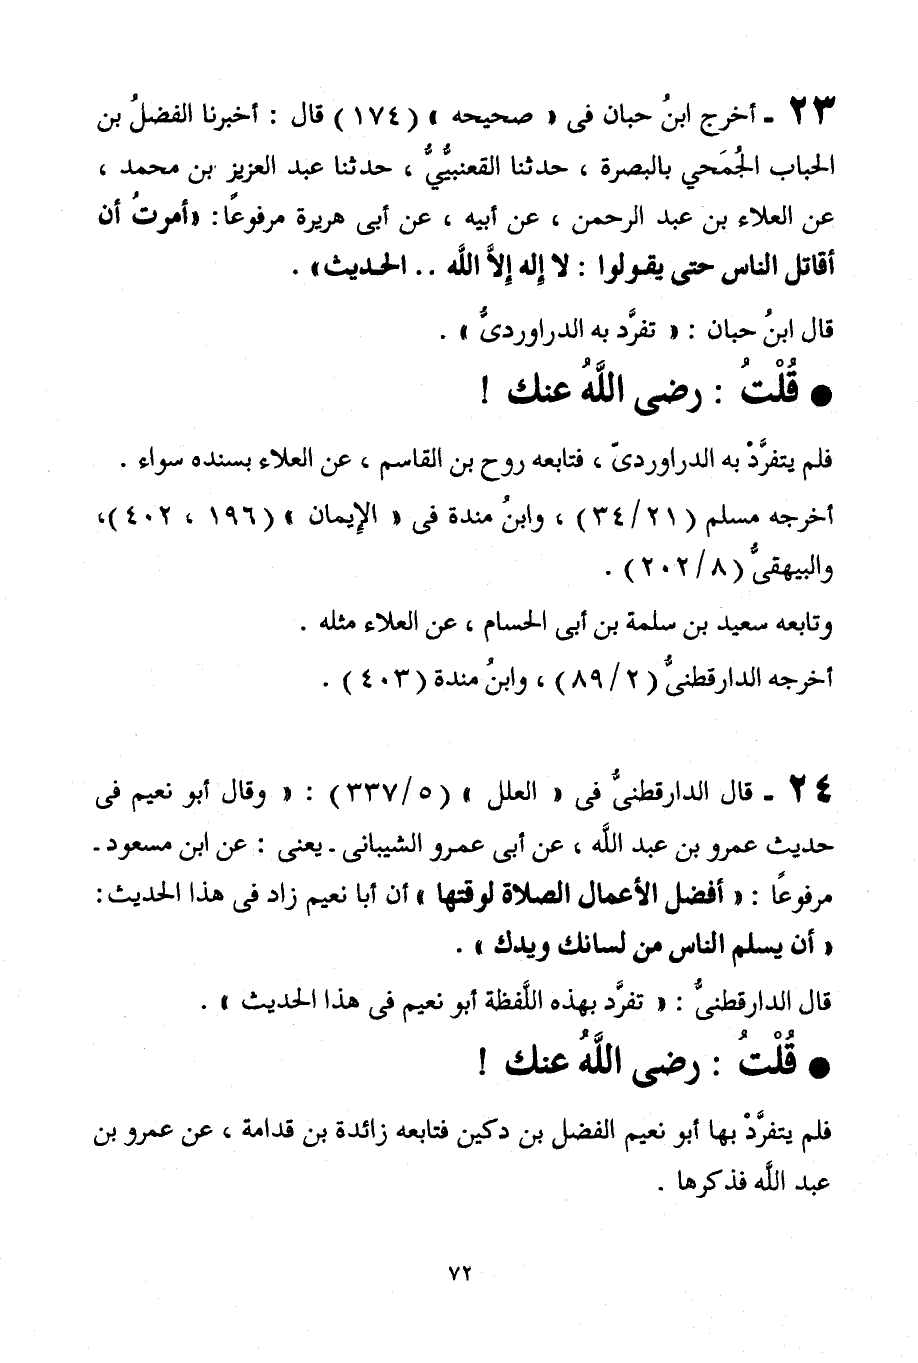 ٢٣ - أخرج ابنُ حبان فى « صحيحه » (١٧٤) قال : أخبرنا الفضلُ بن
الحباب الجُمَحي بالبصرة ، حدثنا القعنبيُّ ، حدثنا عبد العزيز بن محمد ،
عن العلاء بن عبد الرحمن ، عن أبيه ، عن أبى هريرة مرفوعًا: «أمرتُ أن
أقاتل الناس حتى يقولوا : لا إله إلاَّ اللَّه .. الحديث» .
قال ابنُ حبان : « تفرَّد به الدراوردىُّ » .
● قُلْتُ : رضى اللَّهُ عنك !
فلم يتفرَّدْ به الدراوردىّ ، فتابعه روح بن القاسم ، عن العلاء بسنده سواء .
أخرجه مسلم (٣٤/٢١) ، وابنُ مندة فى « الإيمان » (١٩٦ ، ٤٠٢)،
والبيهقىُّ (٢٠٢/٨) .
وتابعه سعيد بن سلمة بن أبى الحسام ، عن العلاء مثله .
أخرجه الدارقطنىُّ (٨٩/٢) ، وابنُ مندة (٤٠٣) .
٢٤ - قال الدارقطنىُّ فى « العلل » (٣٣٧/٥) : « وقال أبو نعيم فى
حديث عمرو بن عبد اللَّه ، عن أبى عمرو الشيبانى - يعنى : عن ابن مسعود -
مرفوعًا : « أفضل الأعمال الصلاة لوقتها » أن أبا نعيم زاد فى هذا الحديث:
« أن يسلم الناس من لسانك ويدك » .
قال الدارقطنىُّ : « تفرَّد بهذه اللَّفظة أبو نعيم فى هذا الحديث » .
● قُلْتُ : رضى اللَّهُ عنك !
فلم يتفرَّدْ بها أبو نعيم الفضل بن دكين فتابعه زائدة بن قدامة ، عن عمرو بن
عبد اللَّه فذكرها .
٧٢